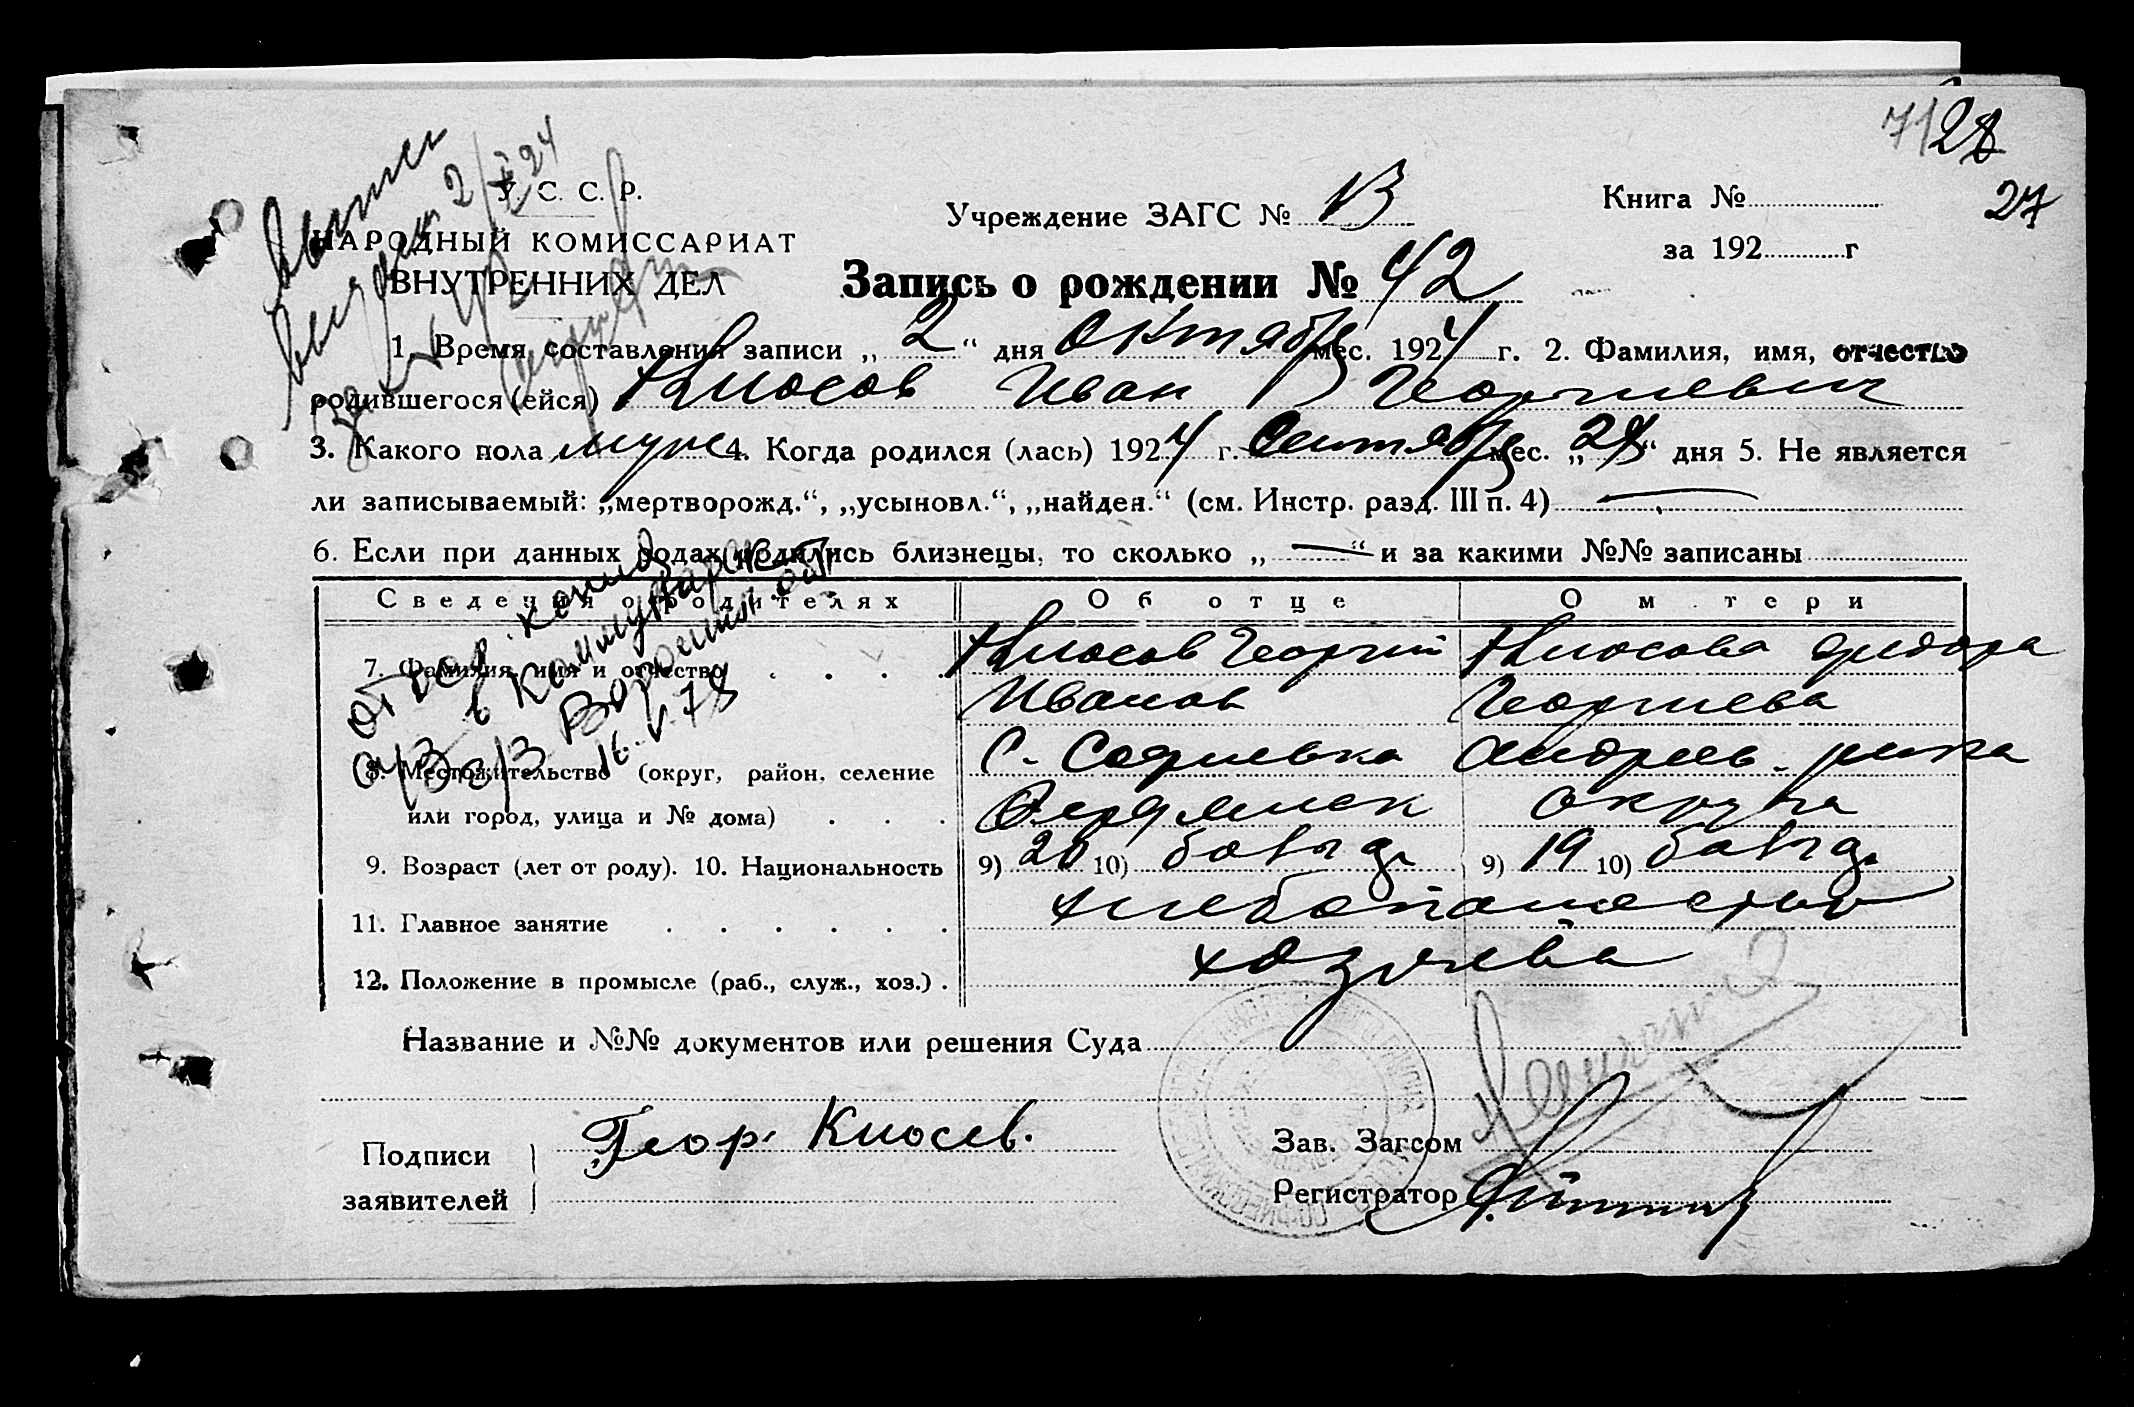 71 28
27
У. С. С. Р.
НАРОДНЫЙ КОМИССАРИАТ
ВНУТРЕННИХ ДЕЛ
Выпись
выдана 2/X 24
Учреждение ЗАГС №
Книга №
за 192 г
Запись о рождении № 42
1. Время составления записи „ 2 “ дня Октября мес. 1924 г. 2. Фамилия, имя, отчество
родившегося (ейся) Кюосов Иван Георгиевич
3. Какого пола муж 4. Когда родился (лась) 1924 г. Сентября мес. „ 28 “ дня 5. Не является
ли записываемый: „мертворожд.“, „усыновл.“, „найден.“ (см. Инстр. разд. III п. 4) —
6. Если при данных родах родились близнецы, то сколько „ — “ и за какими №№ записаны
Сведения о родителях Об отце О матери
7. Фамилия, имя и отчество Кюосов Георгий Кюосова Федора
Иванов Георгиева
8. Местожительство (округ, район, селение С. Софиевка Андреев. р-на
или город, улица и № дома) Бердянск округа
9. Возраст (лет от роду). 10. Национальность 9) 20 10) 9) 19 10)
11. Главное занятие хлебопашество
12. Положение в промысле (раб., служ., хоз.) хозяева
в Коммунарск
Ворошил. обл
16.V.78
Название и №№ документов или решения Суда
Подписи
заявителей
Геор. Киосев.
Зав. Загсом
Регистратор